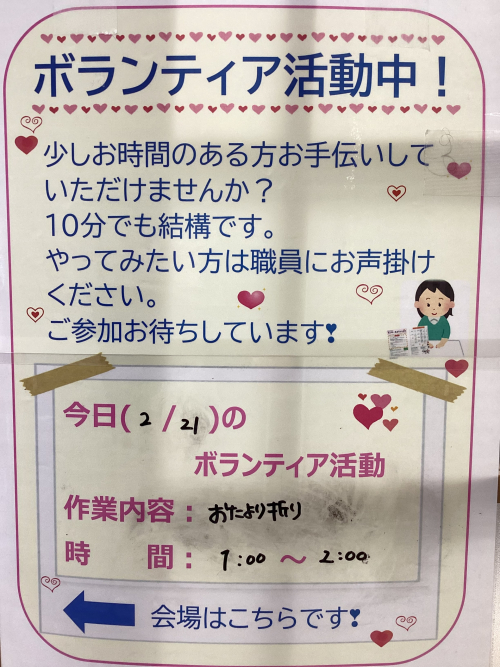 ボランティア活動中！
少しお時間のある方お手伝いして
いただけませんか？
10分でも結構です。
やってみたい方は職員にお声掛け
ください。
ご参加お待ちしています❣
今日( 2 / 21 )の
ボランティア活動
作業内容：おたより折り
時　　間：1:00 ～ 2:00
会場はこちらです❣